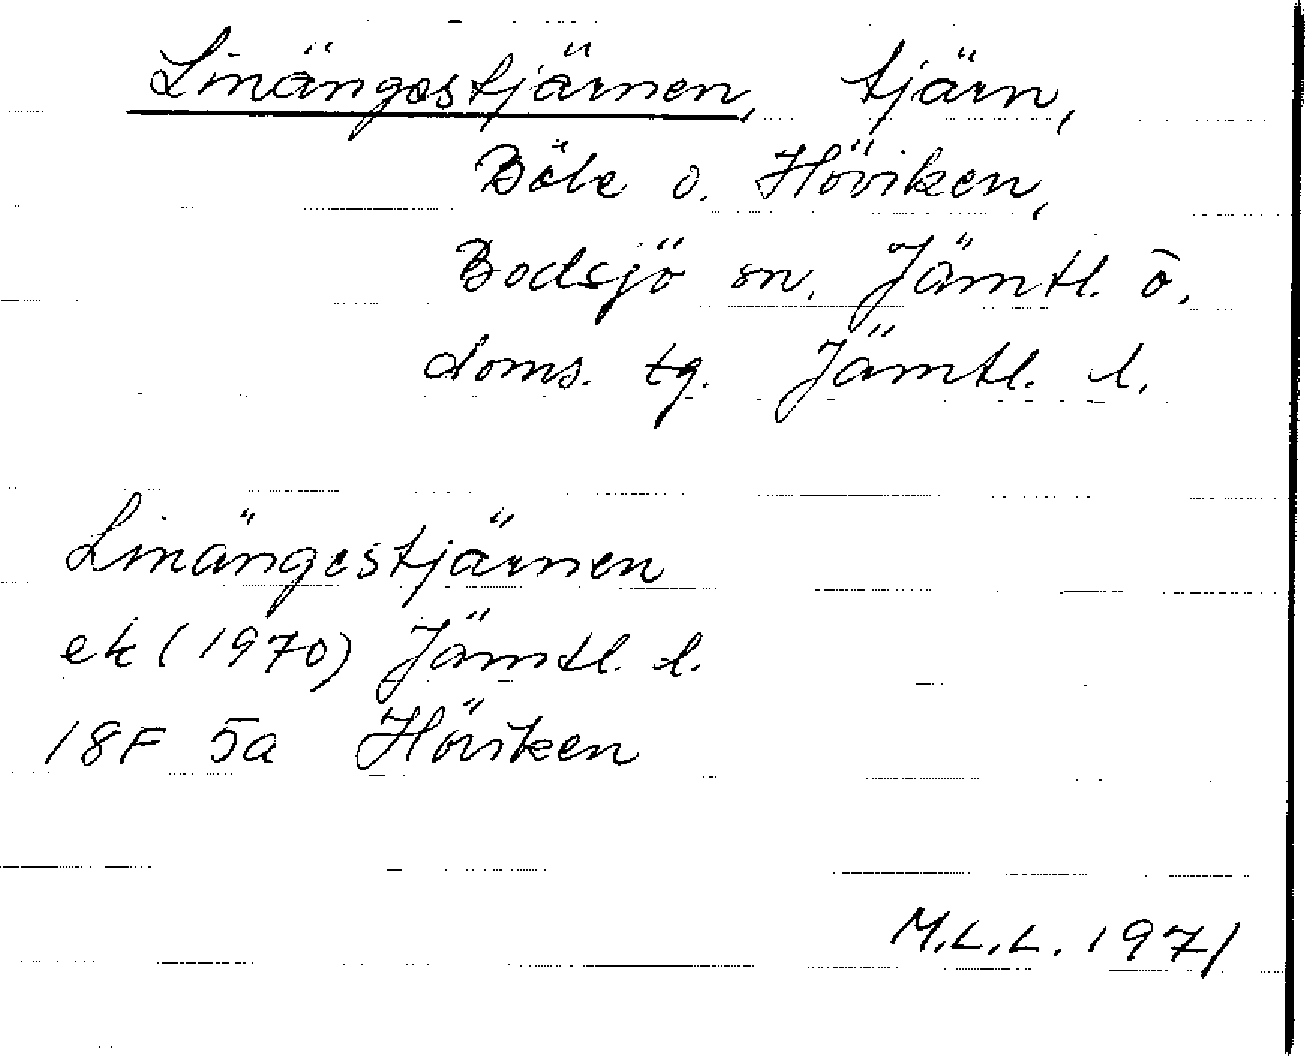 Linängestjärnen, tjärn,
Böle o. Höviken,
Bodsjö sn. Jämtl. ö.
doms. tg. Jämtl. l.
Linängestjärnen
ek (1970) Jämtl. l.
18F 5a Höviken
M.L.L. 1971